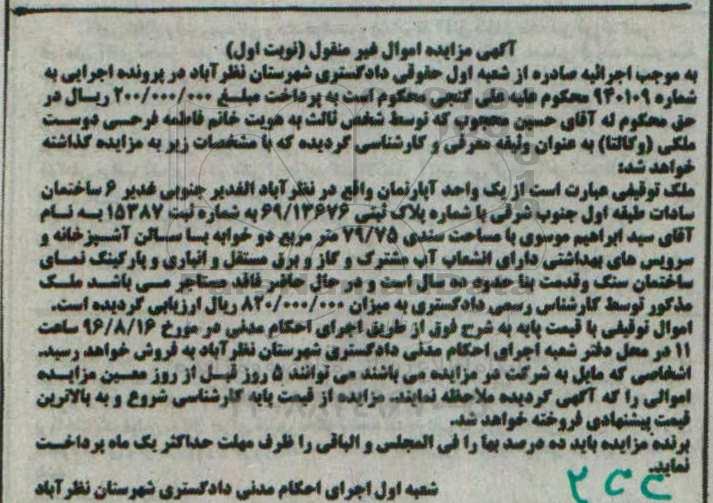 آگهی مزایده اموال غیر منقول (نوبت اول)
به موجب اجرائیه صادره از شعبه اول حقوقی دادگستری شهرستان نظرآباد در پرونده اجرایی به
شماره ۹۴۰۱۰۹ محکوم علیه علی گنجی محکوم است به پرداخت مبلغ ۲۰۰/۰۰۰/۰۰۰ ریال در
حق محکوم له آقای حسین محجوب که توسط شخص ثالث به هویت خانم فاطمه فرحی دوست
ملکی (وکالتا) به عنوان وثیقه معرفی و کارشناسی گردیده که با مشخصات زیر به مزایده گذاشته
خواهد شد:
ملک توقیفی عبارت است از یک واحد آپارتمان واقع در نظرآباد الغدیر جنوبی غدیر ۶ ساختمان
سادات طبقه اول جنوب شرقی با شماره پلاک ثبتی ۶۹/۱۳۶۷۶ به شماره ثبت ۱۵۳۸۷ به نام
آقای سید ابراهیم موسوی با مساحت سندی ۷۹/۷۵ متر مربع دو خوابه با سالن آشپزخانه و
سرویس های بهداشتی دارای انشعاب آب مشترک و گاز و برق مستقل و انباری و پارکینگ نمای
ساختمان سنگ وقدمت بنا حدود ده سال است و در حال حاضر فاقد مستاجر می باشد ملک
مذکور توسط کارشناس رسمی دادگستری به میزان ۸۲۰/۰۰۰/۰۰۰ ریال ارزیابی گردیده است.
اموال توقیفی با قیمت پایه به شرح فوق از طریق اجرای احکام مدنی در مورخ ۹۶/۸/۱۶ ساعت
۱۱ در محل دفتر شعبه اجرای احکام مدنی دادگستری شهرستان نظرآباد به فروش خواهد رسید.
اشخاصی که مایل به شرکت در مزایده می باشند می توانند ۵ روز قبل از روز معین مزایده
اموالی را که آگهی گردیده ملاحظه نمایند. مزایده از قیمت پایه کارشناسی شروع و به بالاترین
قیمت پیشنهادی فروخته خواهد شد.
برنده مزایده باید ده درصد بها را فی المجلس و الباقی را ظرف مهلت حداکثر یک ماه پرداخت
نماید.
شعبه اول اجرای احکام مدنی دادگستری شهرستان نظرآباد